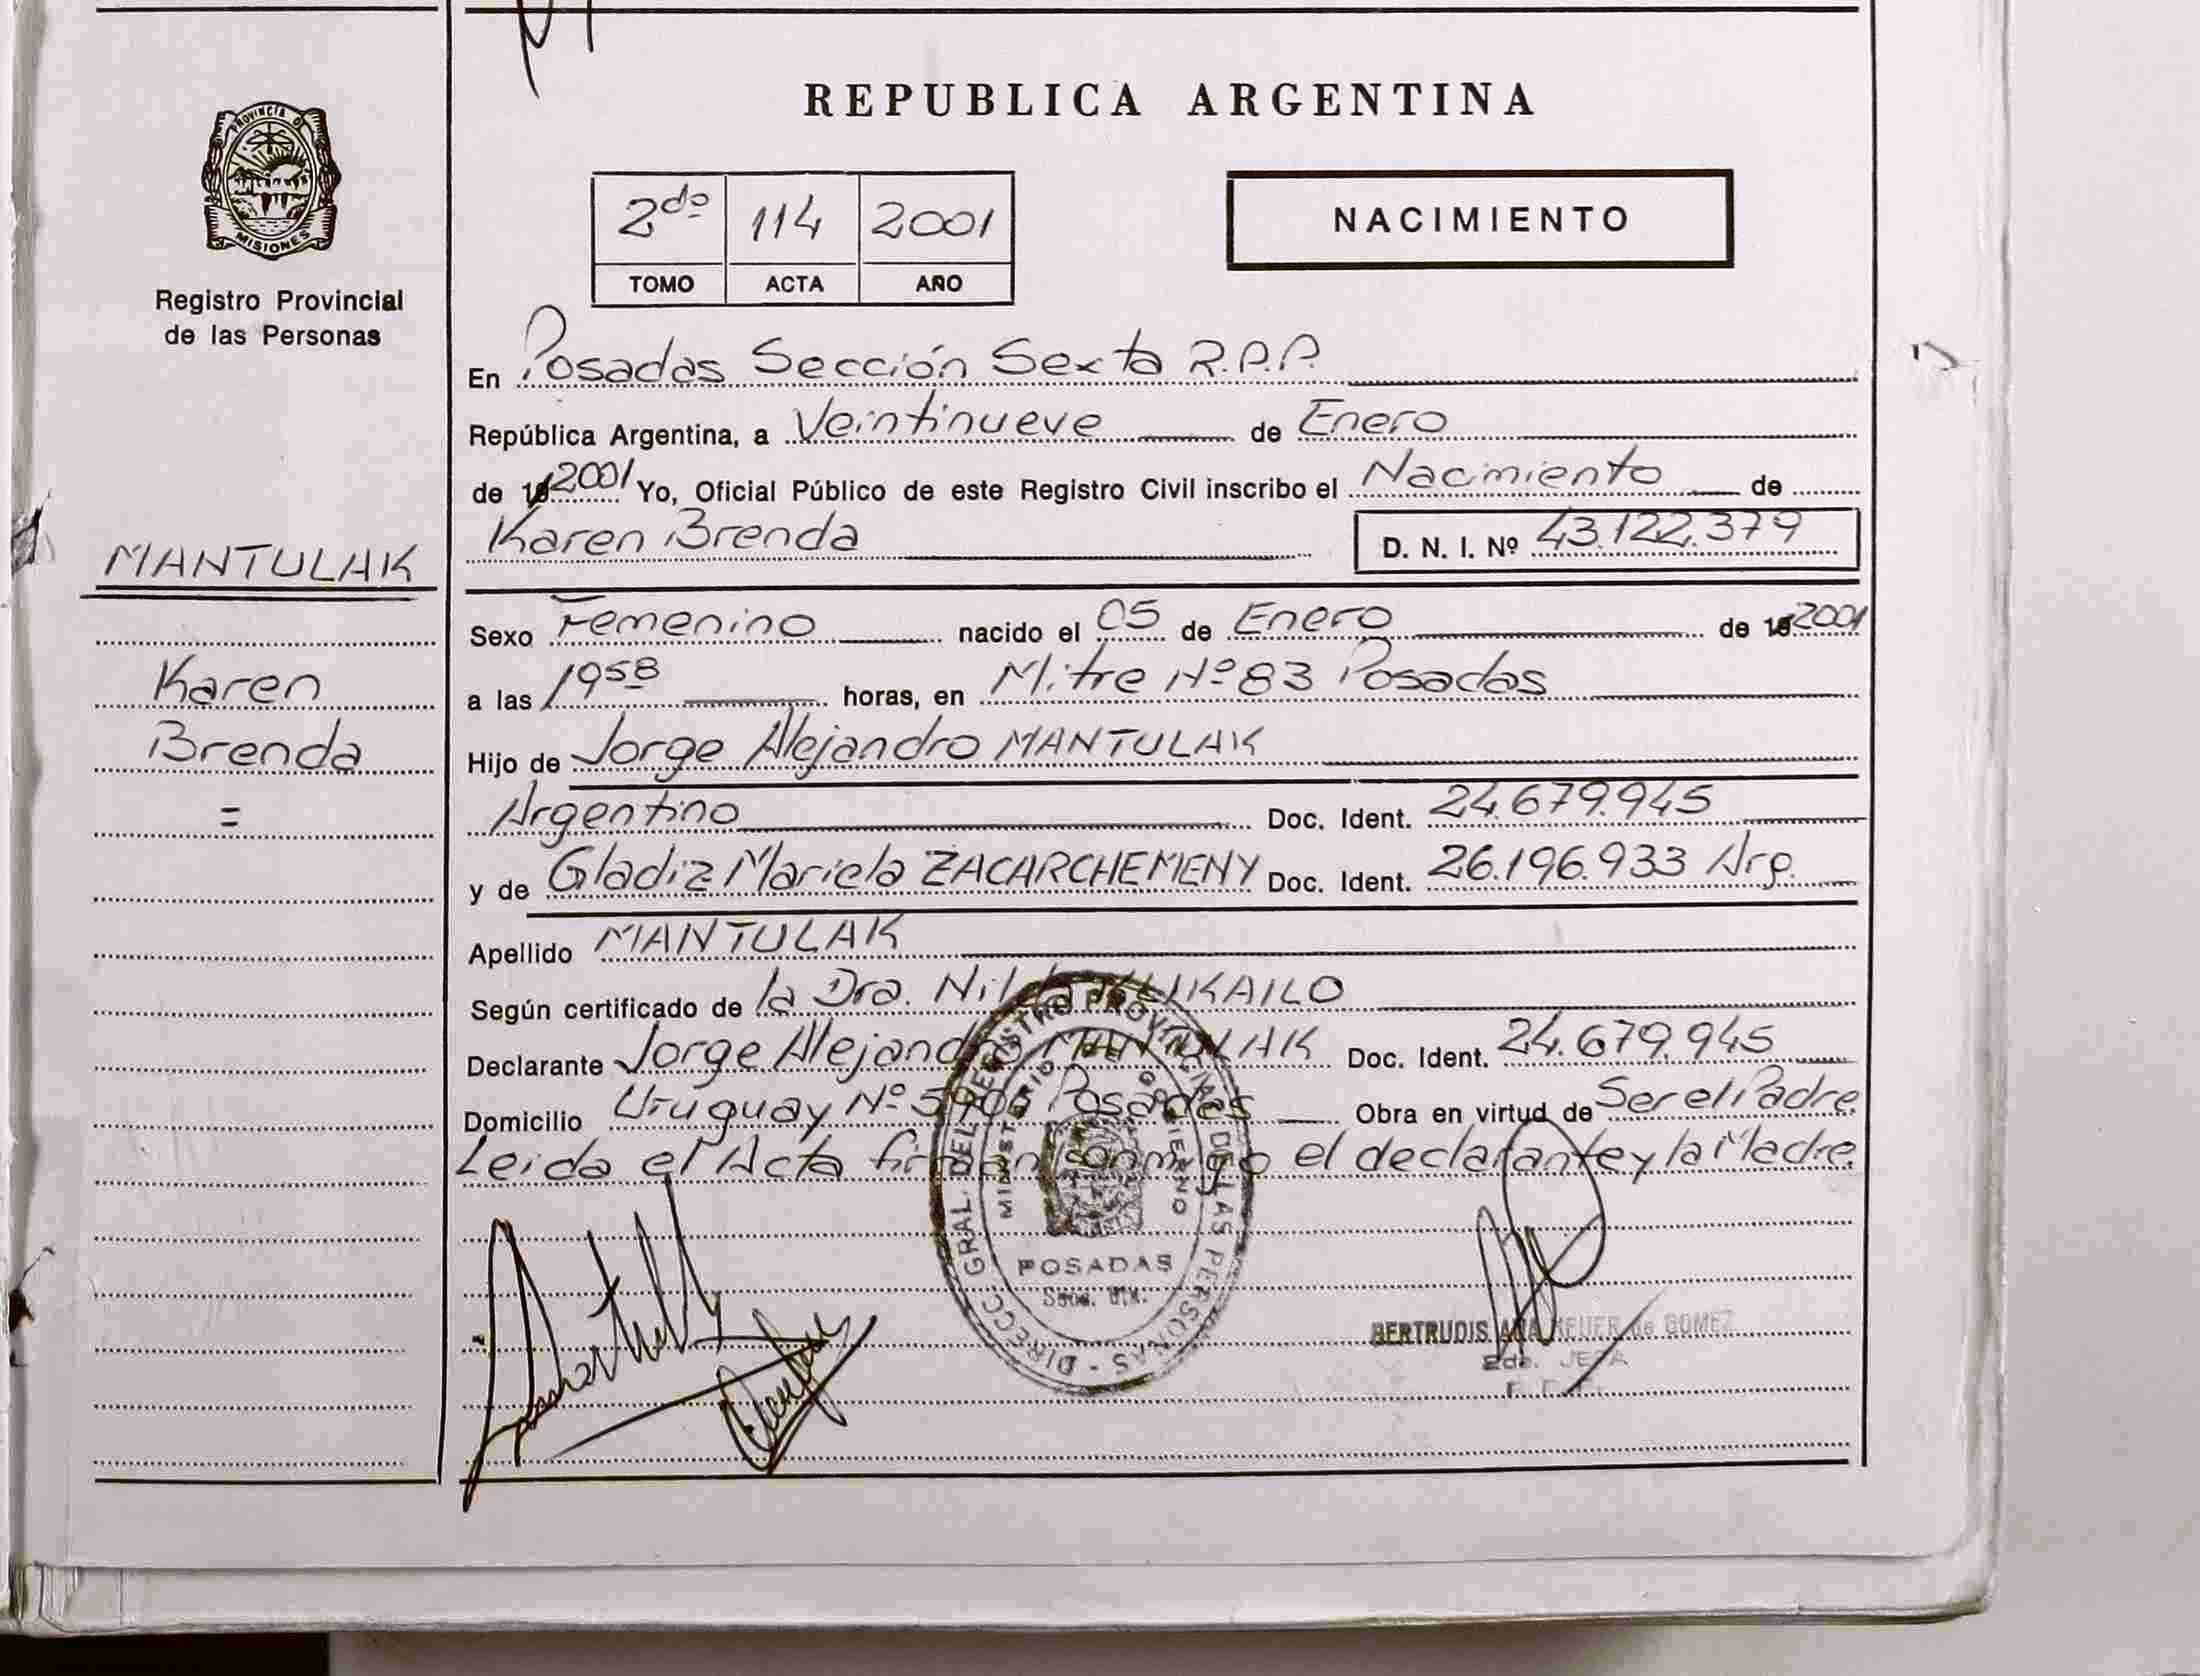 REPUBLICA ARGENTINA
PROVINCIA D
MISIONES
Registro Provincial
de las Personas
2do 114 2001
TOMO ACTA AÑO
NACIMIENTO
En Posadas Sección Sexta R.P.P.
República Argentina, a Veintinueve de Enero
de 2001 Yo, Oficial Público de este Registro Civil inscribo el Nacimiento de
Karen Brenda D. N. I. Nº 43.122.379
MANTULAK
Karen
Brenda
=
Sexo Femenino nacido el 05 de Enero de 2001
a las 1958 horas, en Mitre Nº 83 Posadas
Hijo de Jorge Alejandro MANTULAK
Argentino Doc. Ident. 24.679.945
y de Gladiz Mariela ZACARCHEMENY Doc. Ident. 26.196.933 Arg.
Apellido MANTULAK
Según certificado de la Dra.
Declarante Jorge Alejandro MANTULAK Doc. Ident. 24.679.945
Domicilio Uruguay Nº Posadas Obra en virtud de Ser el Padre
Leida el Acta firman conmigo el declarante y la Madre.
DIRECC. GRAL. DEL REGISTRO PROVINCIAL DE LAS PERSONAS -
MINISTERIO DE GOBIERNO
POSADAS
BERTRUDIS ANA de GOMEZ
2da. JEFA